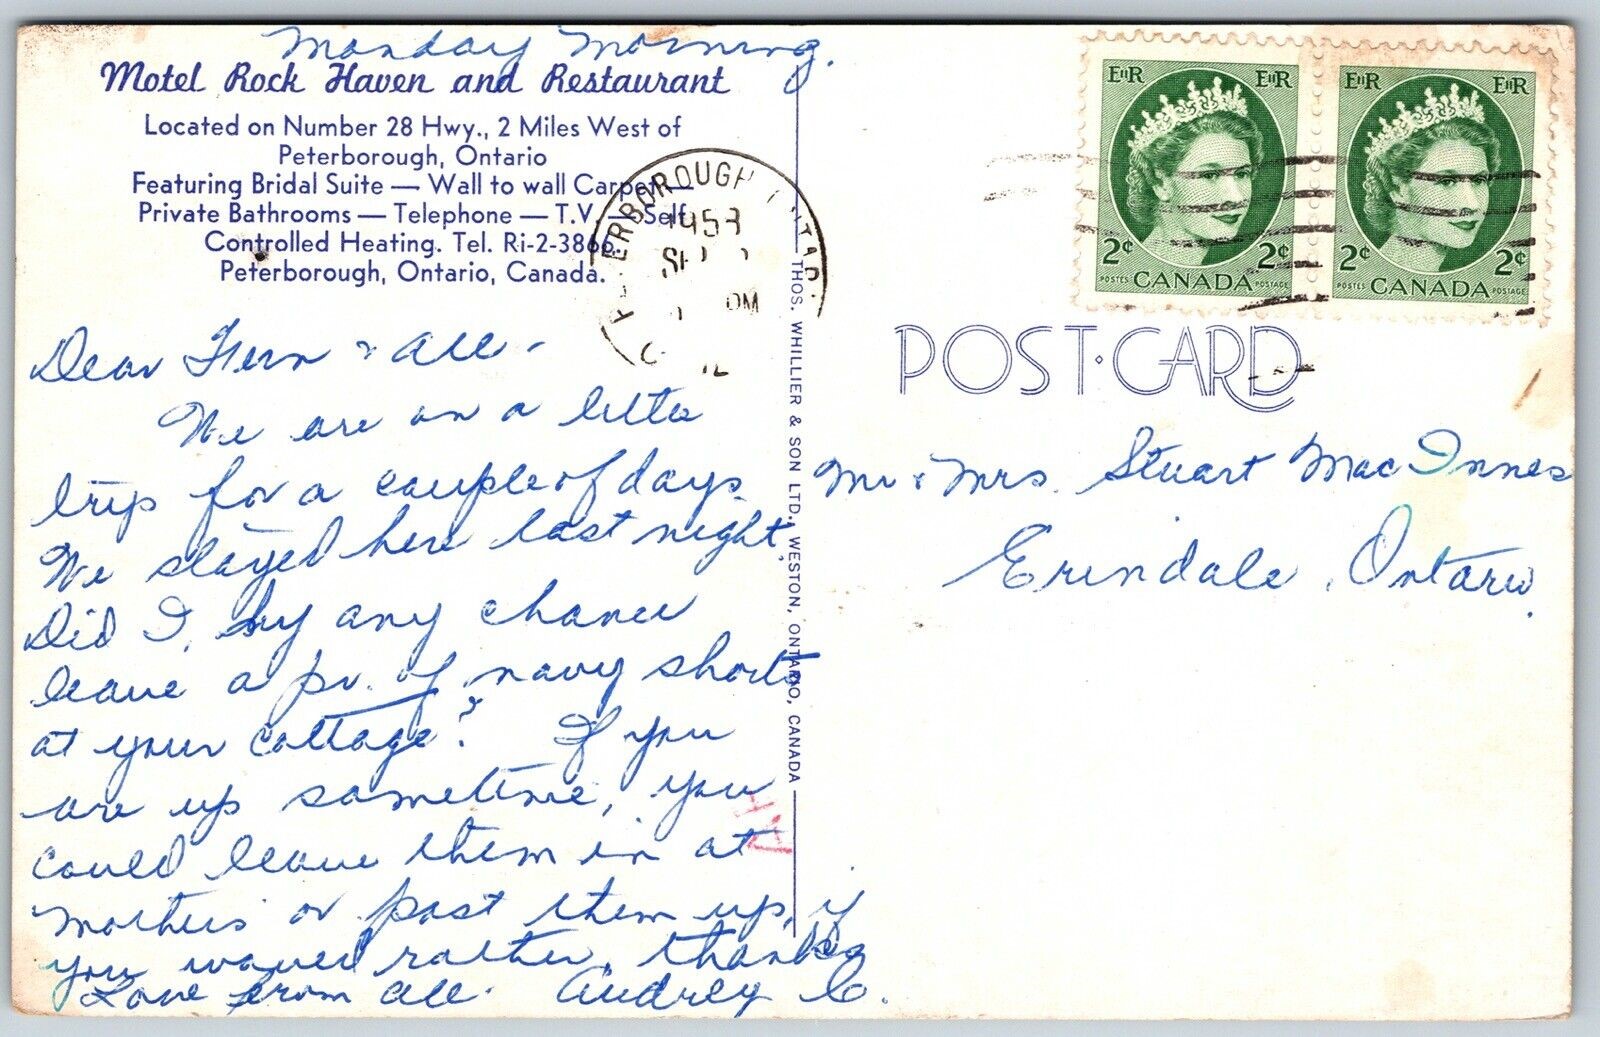 Monday Morning.
Motel Rock Haven and Restaurant
Located on Number 28 Hwy., 2 Miles West of
Peterborough, Ontario
Featuring Bridal Suite — Wall to wall Carpet —
Private Bathrooms — Telephone — T.V. — Self
Controlled Heating. Tel. Ri-2-3866.
Peterborough, Ontario, Canada.
Dear Fern & all -
We are on a little
trip for a couple of days.
We stayed here last night,
Did I, by any chance
leave a pr. of navy shorts
at your cottage? If you
are up sometime, you
could leave them in at
mothers or post them up, if
you would rather, thanks
Love from all. Audrey C.
THOS. WHILLIER & SON LTD., WESTON, ONTARIO, CANADA
PETERBOROUGH ONTARIO
1958
PM
EIIR EIIR
2¢ 2¢
POSTES CANADA POSTAGE
EIIR EIIR
2¢ 2¢
POSTES CANADA POSTAGE
POST·CARD
Mr & Mrs. Stuart MacInnes
Erindale, Ontario.